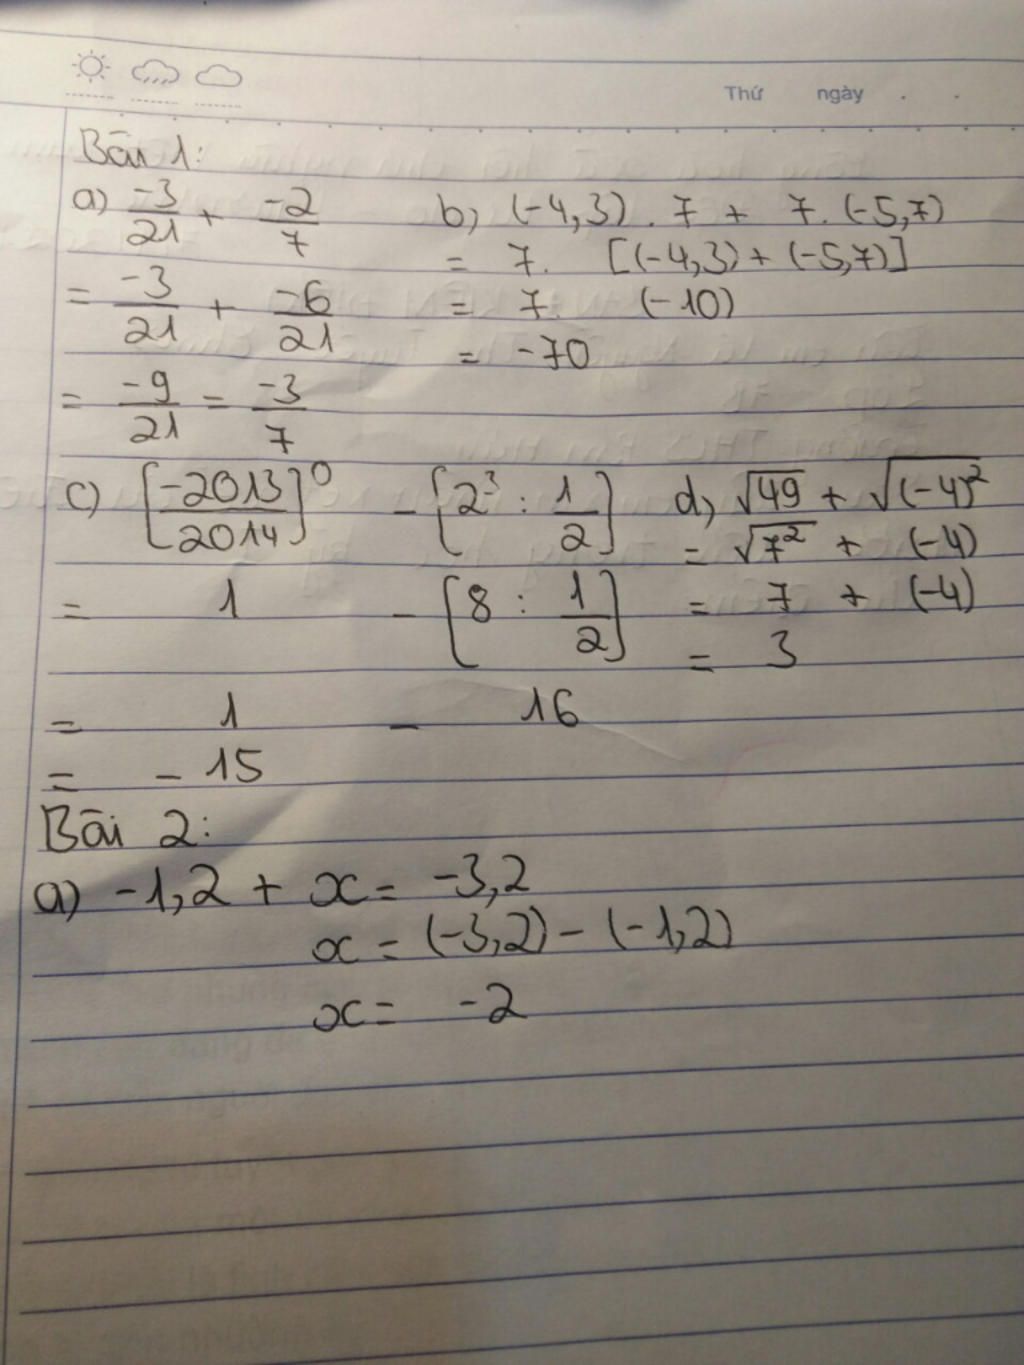 Thứ ngày . .
Bài 1:
a) -3/21 + -2/7
= -3/21 + -6/21
= -9/21 = -3/7
b) (-4,3) . 7 + 7. (-5,7)
= 7. [(-4,3) + (-5,7)]
= 7. (-10)
= -70
c) [-2013/2014]⁰ - [2³ : 1/2]
= 1 - [8 : 1/2]
= 1 - 16
= - 15
d) √49 + √(-4)²
= √7² + (-4)
= 7 + (-4)
= 3
Bài 2:
a) -1,2 + x = -3,2
x = (-3,2) - (-1,2)
x = -2